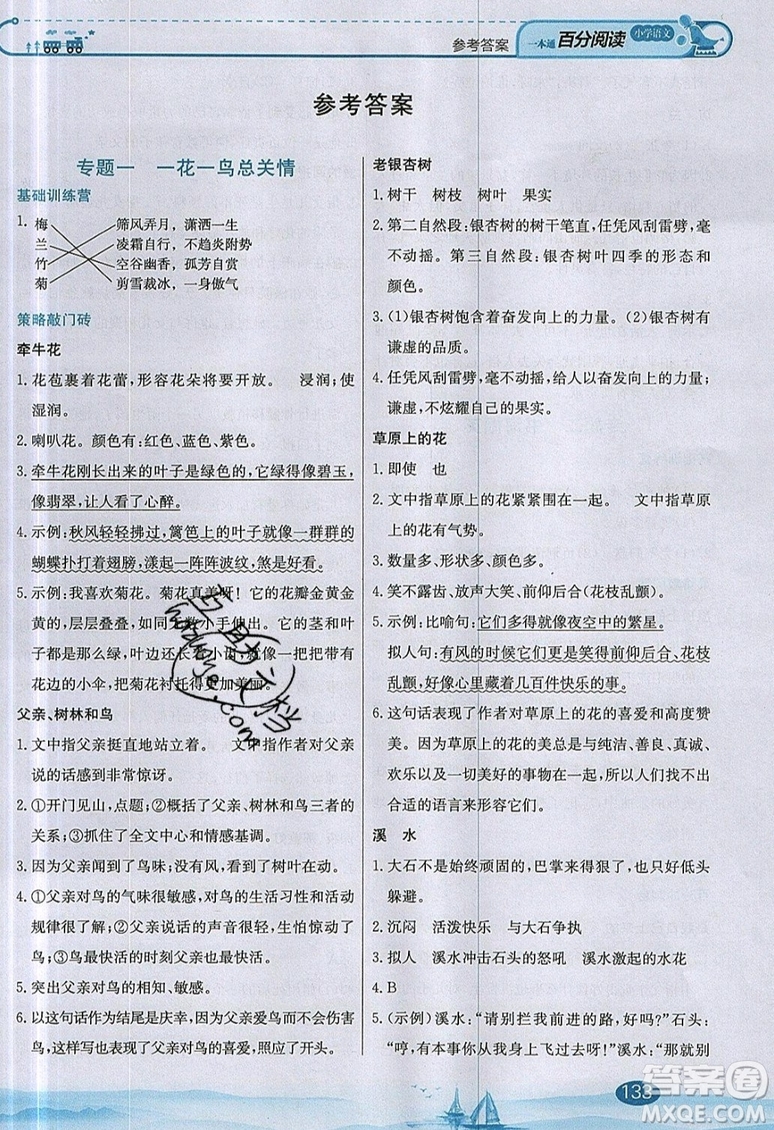 参考答案
一本通
百分阅读
小学语文
参考答案
专题一 一花一鸟总关情
基础训练营
1. 梅 筛风弄月，潇洒一生
兰 凌霜自行，不趋炎附势
竹 空谷幽香，孤芳自赏
菊 剪雪裁冰，一身傲气
策略敲门砖
牵牛花
1. 花苞裹着花蕾，形容花朵将要开放。 浸润；使
湿润。
2. 喇叭花。颜色有：红色、蓝色、紫色。
3. 牵牛花刚长出来的叶子是绿色的，它绿得像碧玉，
像翡翠，让人看了心醉。
4. 示例：秋风轻轻拂过，篱笆上的叶子就像一群群的
蝴蝶扑打着翅膀，漾起一阵阵波纹，煞是好看。
5. 示例：我喜欢菊花。菊花真美呀！它的花瓣金黄金
黄的，层层叠叠，如同无数小手伸出。它的茎和叶
子都是绿油油的，叶边还长着小齿，就像一把把带有
花边的小伞，把菊花衬托得更加美丽。
父亲、树林和鸟
1. 文中指父亲挺直地站立着。 文中指作者对父亲
说的话感到非常惊讶。
2. ①开门见山，点题；②概括了父亲、树林和鸟三者的
关系；③引出了全文中心和情感基调。
3. 因为父亲闻到了鸟味；没有风，但看到了树叶在动。
4. ①父亲对鸟的气味很敏感，对鸟的生活习性和活动
规律很了解；②父亲说话的声音很轻，生怕惊动鸟
儿；③鸟最快活的时刻父亲也最快乐。
5. 突出父亲对鸟的相知、敏感。
6. 以这句话作为结尾是庆幸，因为父亲爱鸟而且懂
鸟，这样写突出了父亲对鸟的喜爱，照应了开头。
老银杏树
1. 树干 树枝 树叶 果实
2. 第二自然段：银杏树的树干笔直，任凭风刮雷劈，毫
不动摇。第三自然段：银杏树叶四季的形态和
颜色。
3. (1)银杏树饱含着奋发向上的力量。(2)银杏树有
谦虚的品质。
4. 任凭风刮雷劈，毫不动摇，给人以奋发向上的力量；
谦虚，不炫耀自己的果实。
草原上的花
1. 即使 也
2. 文中指草原上的花紧紧围在一起。 文中指草原
上的花有气势。
3. 数量多、形状多、颜色多。
4. 笑不露齿、放声大笑、前仰后合（花枝乱颤）
5. 示例：比喻句：它们多得就像夜空中的繁星。
拟人句：有风的时候呢，它们你拥我挤的，花枝
乱颤，好像心里藏着几百件快乐的事。
6. 这句话表现了作者对草原上的花的喜爱和高度赞
美。因为，因为草原上的花的美总是与纯洁、善良、真诚、
欢乐以及一切美好的事物在一起，所以作者找不出
合适的语言来形容它们。
溪 水
1. 大石不是始终顽固的，巴掌来得很凶，也只好低头
躲避。
2. 沉闷 活泼快乐 与大石争执
3. 拟人 溪水冲击石头的怒吼 溪水的水花
4. B
5. (示例)溪水：“请别拦我前进的路，好吗？”石头：
“哼，有本事你就从我身上飞过去呀！”溪水：“那就别
133
答案圈
MXQE.COM